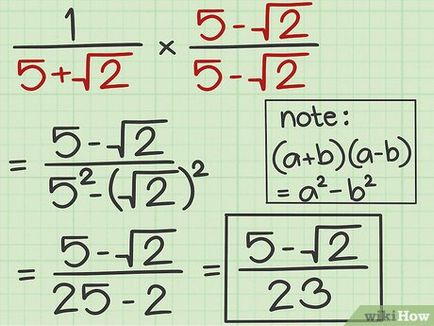 1/(5+√2) × (5-√2)/(5-√2)
= (5-√2)/(5²-(√2)²)
note:
(a+b)(a-b)
= a²-b²
= (5-√2)/(25-2) = (5-√2)/23
wikiHow